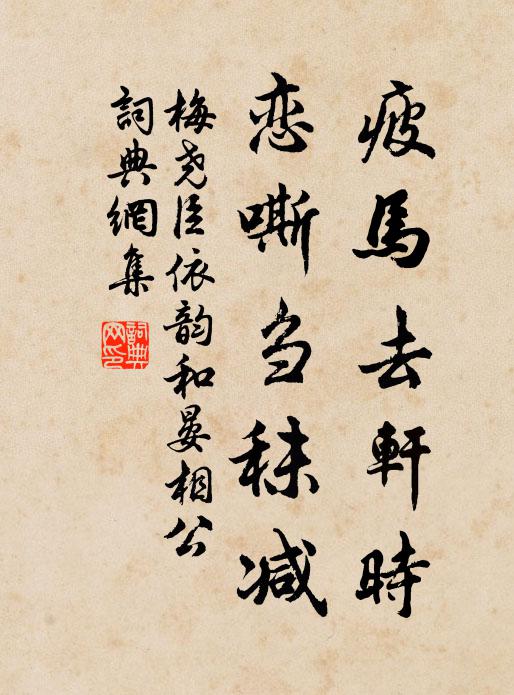 疲馬去軒時
恋嘶刍秣减
梅尧臣依韵和晏相公
詞典網集
詞典网印